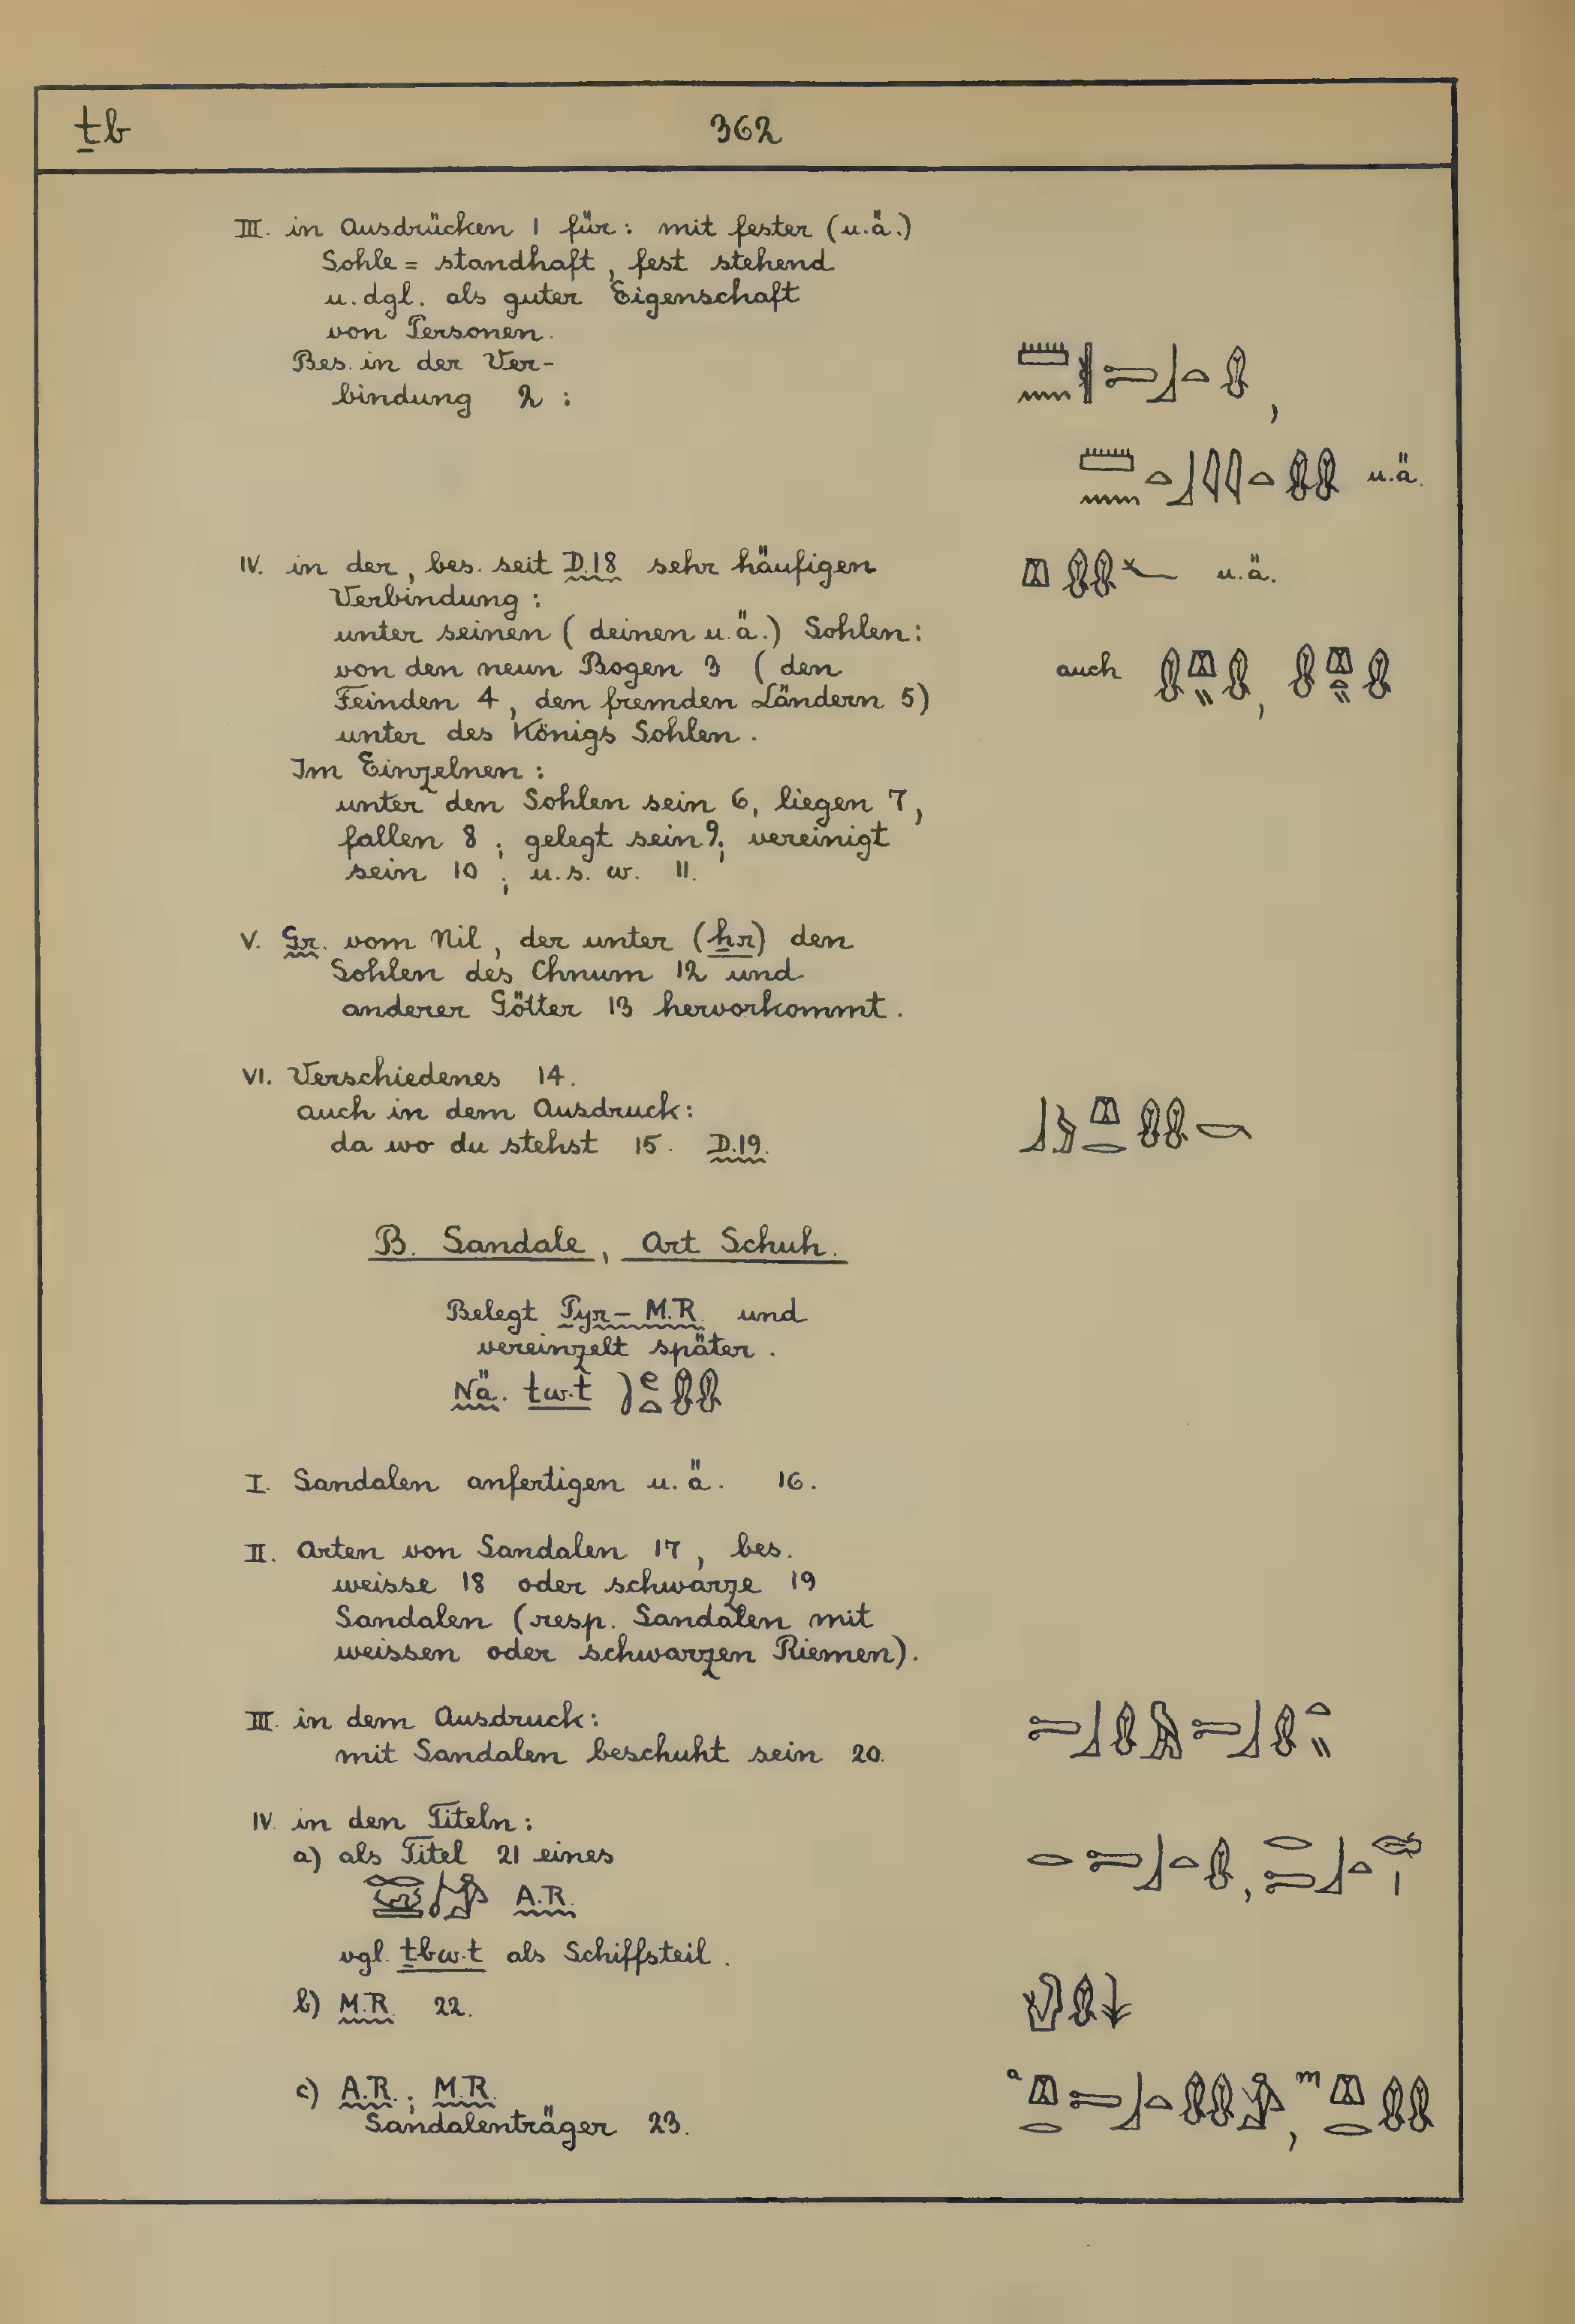 ṯb 362
III. in Ausdrücken 1 für: mit fester (u.ä.)
Sohle = standhaft, fest stehend
u. dgl. als guter Eigenschaft
von Personen.
Bes. in der Ver-
bindung 2 :
u.ä.
IV. in der, bes. seit D.18 sehr häufigen
u.ä.
Verbindung:
unter seinen (deinen u.ä.) Sohlen:
von den neun Bogen 3 (den
auch
Feinden 4, den fremden Ländern 5)
unter des Königs Sohlen.
Im Einzelnen:
unter den Sohlen sein 6, liegen 7,
fallen 8 ; gelegt sein 9; vereinigt
sein 10 ; u.s.w. 11.
V. Gr. vom Nil, der unter (ẖr) den
Sohlen des Chnum 12 und
anderer Götter 13 hervorkommt.
VI. Verschiedenes 14.
auch in dem Ausdruck:
da wo du stehst 15. D.19.
B. Sandale, Art Schuh.
Belegt Pyr – M.R. und
vereinzelt später.
Nä. tw.t
I. Sandalen anfertigen u.ä. 16.
II. Arten von Sandalen 17, bes.
weisse 18 oder schwarze 19
Sandalen (resp. Sandalen mit
weissen oder schwarzen Riemen).
III. in dem Ausdruck:
mit Sandalen beschuht sein 20.
IV. in den Titeln:
a) als Titel 21 eines
A.R.
vgl. ṯbw.t als Schiffsteil.
b) M.R. 22.
c) A.R.; M.R.
a m
Sandalenträger 23.